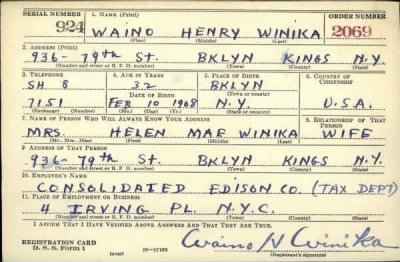 SERIAL NUMBER 1. NAME (Print) ORDER NUMBER
924 WAINO HENRY WINIKA 2069
(First) (Middle) (Last)
2. ADDRESS (Print)
936-79th ST. BKLYN KINGS N.Y.
(Number and street or R. F. D. number) (Town) (County) (State)
3. TELEPHONE 4. AGE IN YEARS 5. PLACE OF BIRTH 6. COUNTRY OF CITIZENSHIP
SH 8 32 BKLYN
DATE OF BIRTH (Town or county)
7151 FEB 10 1908 N.Y. U.S.A.
(Exchange) (Number) (Mo.) (Day) (Yr.) (State or country)
7. NAME OF PERSON WHO WILL ALWAYS KNOW YOUR ADDRESS 8. RELATIONSHIP OF THAT PERSON
MRS. HELEN MAE WINIKA WIFE
(Mr., Mrs., Miss) (First) (Middle) (Last)
9. ADDRESS OF THAT PERSON
936-79th ST. BKLYN KINGS N.Y.
(Number and street or R. F. D. number) (Town) (County) (State)
10. EMPLOYER'S NAME
CONSOLIDATED EDISON CO. (TAX DEPT)
11. PLACE OF EMPLOYMENT OR BUSINESS
4 IRVING PL. N.Y.C.
(Number and street or R. F. D. number) (Town) (County) (State)
I AFFIRM THAT I HAVE VERIFIED ABOVE ANSWERS AND THAT THEY ARE TRUE.
REGISTRATION CARD
D. S. S. Form 1 (over) 16-17105 Waino H Winika
(Registrant's signature)